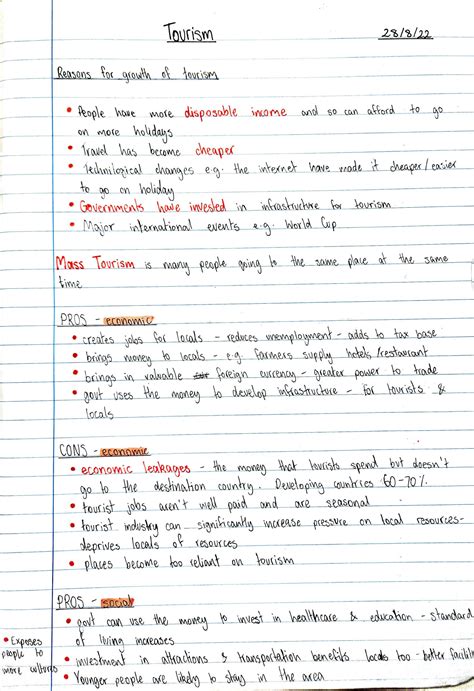 Tourism 28/8/22
Reasons for growth of tourism
• People have more disposable income and so can afford to go
on more holidays
• Travel has become cheaper
• Technilogical changes e.g. the internet have made it cheaper/easier
to go on holiday
• Governments have invested in infrastructure for tourism
• Major international events e.g. World Cup
Mass Tourism is many people going to the same place at the same
time
PROS - economic
• creates jobs for locals - reduces unemployment - adds to tax base
• brings money to locals - e.g. farmers supply hotels/restaurant
• brings in valuable foreign currency - greater power to trade
• govt uses the money to develop infrastructure - for tourists &
locals
CONS - economic
• economic leakages - the money that tourists spend but doesn't
go to the destination country. Developing countries 60-70%
• tourist jobs aren't well paid and are seasonal
• tourist industry can significantly increase pressure on local resources-
deprives locals of resources
• places become too reliant on tourism
PROS - social
• govt can use the money to invest in healthcare & education - standard
of living increases
• Exposes
people to
more cultures
• investment in attractions & transportation benefits locals too - better facilit
• Younger people are likely to stay in the area